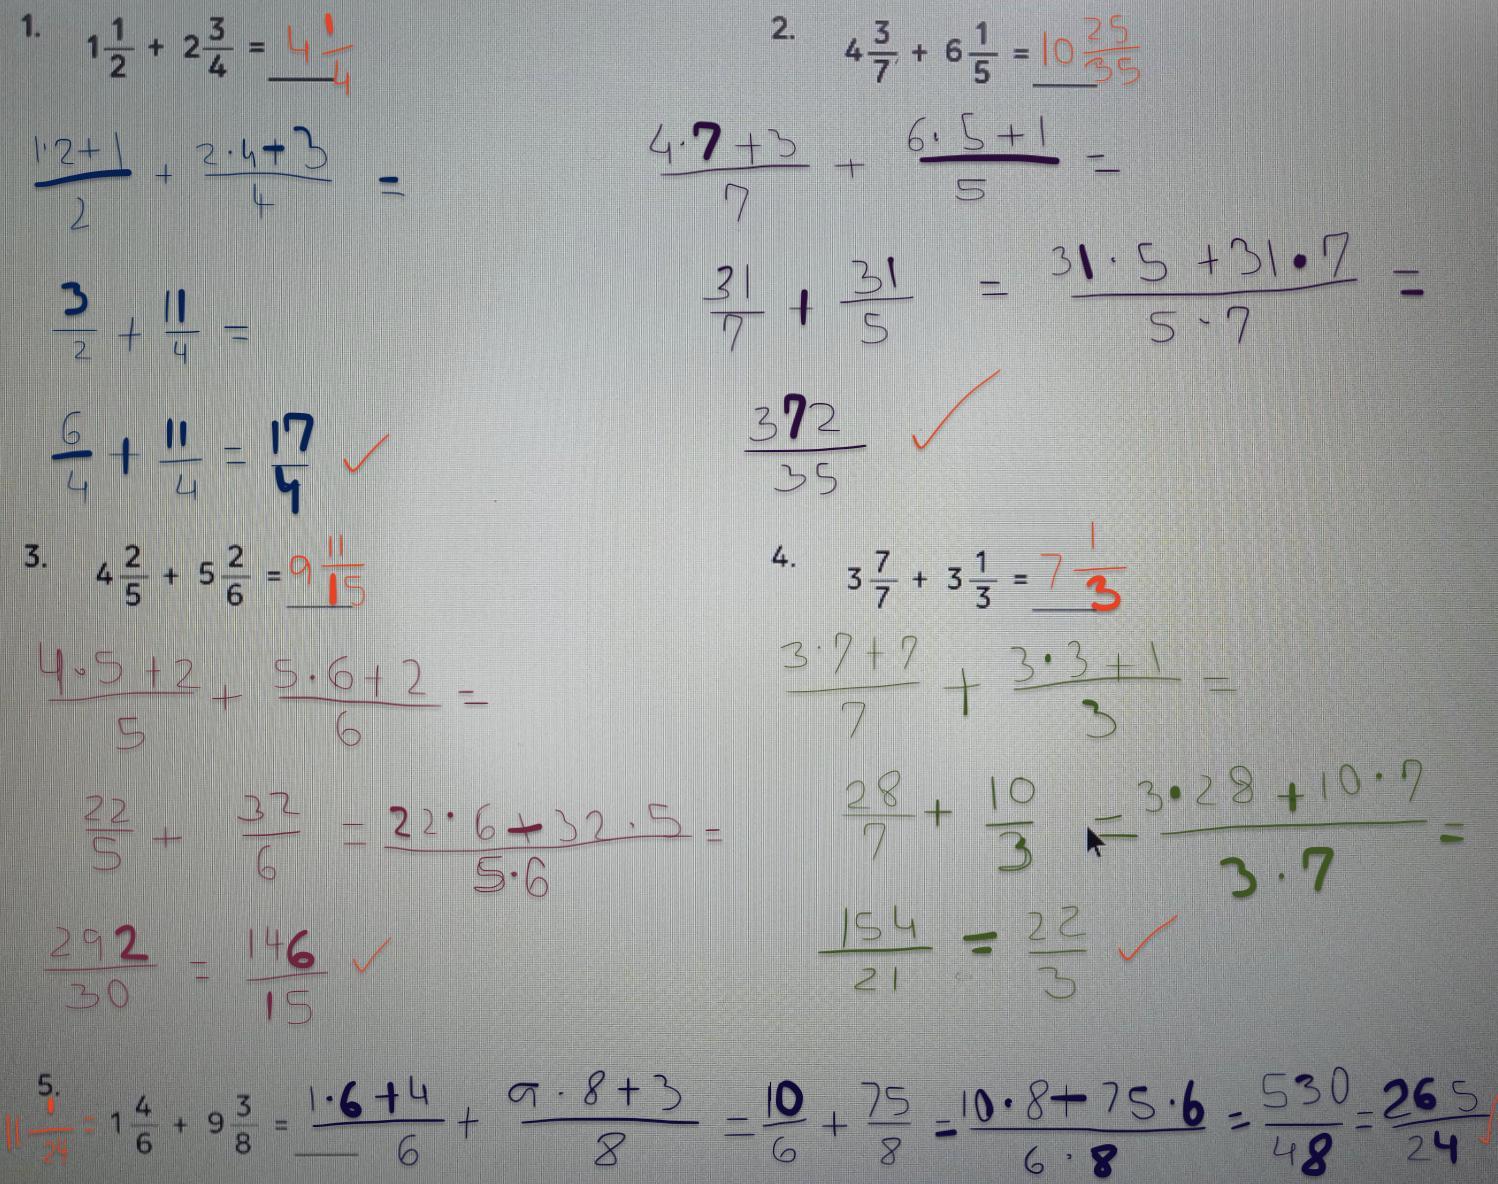 1. 1 1/2 + 2 3/4 = 4 1/4
(1·2+1)/2 + (2·4+3)/4 =
3/2 + 11/4 =
6/4 + 11/4 = 17/4 ✓
2. 4 3/7 + 6 1/5 = 10 25/35
(4·7+3)/7 + (6·5+1)/5 =
31/7 + 31/5 = (31·5+31·7)/(5·7) =
372/35 ✓
3. 4 2/5 + 5 2/6 = 9 11/15
(4·5+2)/5 + (5·6+2)/6 =
22/5 + 32/6 = (22·6+32·5)/(5·6) =
292/30 = 146/15 ✓
4. 3 7/7 + 3 1/3 = 7 1/3
(3·7+7)/7 + (3·3+1)/3 =
28/7 + 10/3 = (3·28+10·7)/(3·7) =
154/21 = 22/3 ✓
5.
11 1/24 = 1 4/6 + 9 3/8 = (1·6+4)/6 + (9·8+3)/8 = 10/6 + 75/8 = (10·8+75·6)/(6·8) = 530/48 = 265/24 ✓